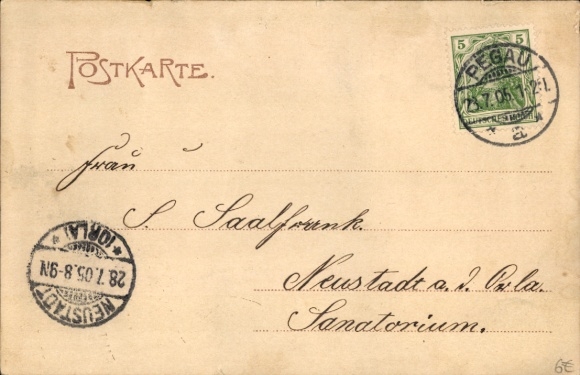 POSTKARTE.
5 5
PEGAU
7.05
* a *
Frau
S. Saalfrank.
Neustadt a. d. Orla.
Sanatorium.
* (ORLA) *
28.7.05.8-9N
NEUSTADT
6€